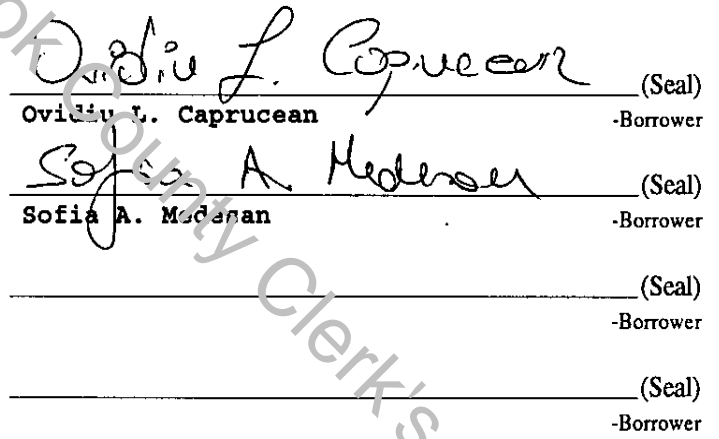 Ovidiu L. Caprucean (Seal)
Ovidiu L. Caprucean -Borrower
Sofia A. Medesan (Seal)
Sofia A. Medesan -Borrower
(Seal)
-Borrower
(Seal)
-Borrower
County Clerk's